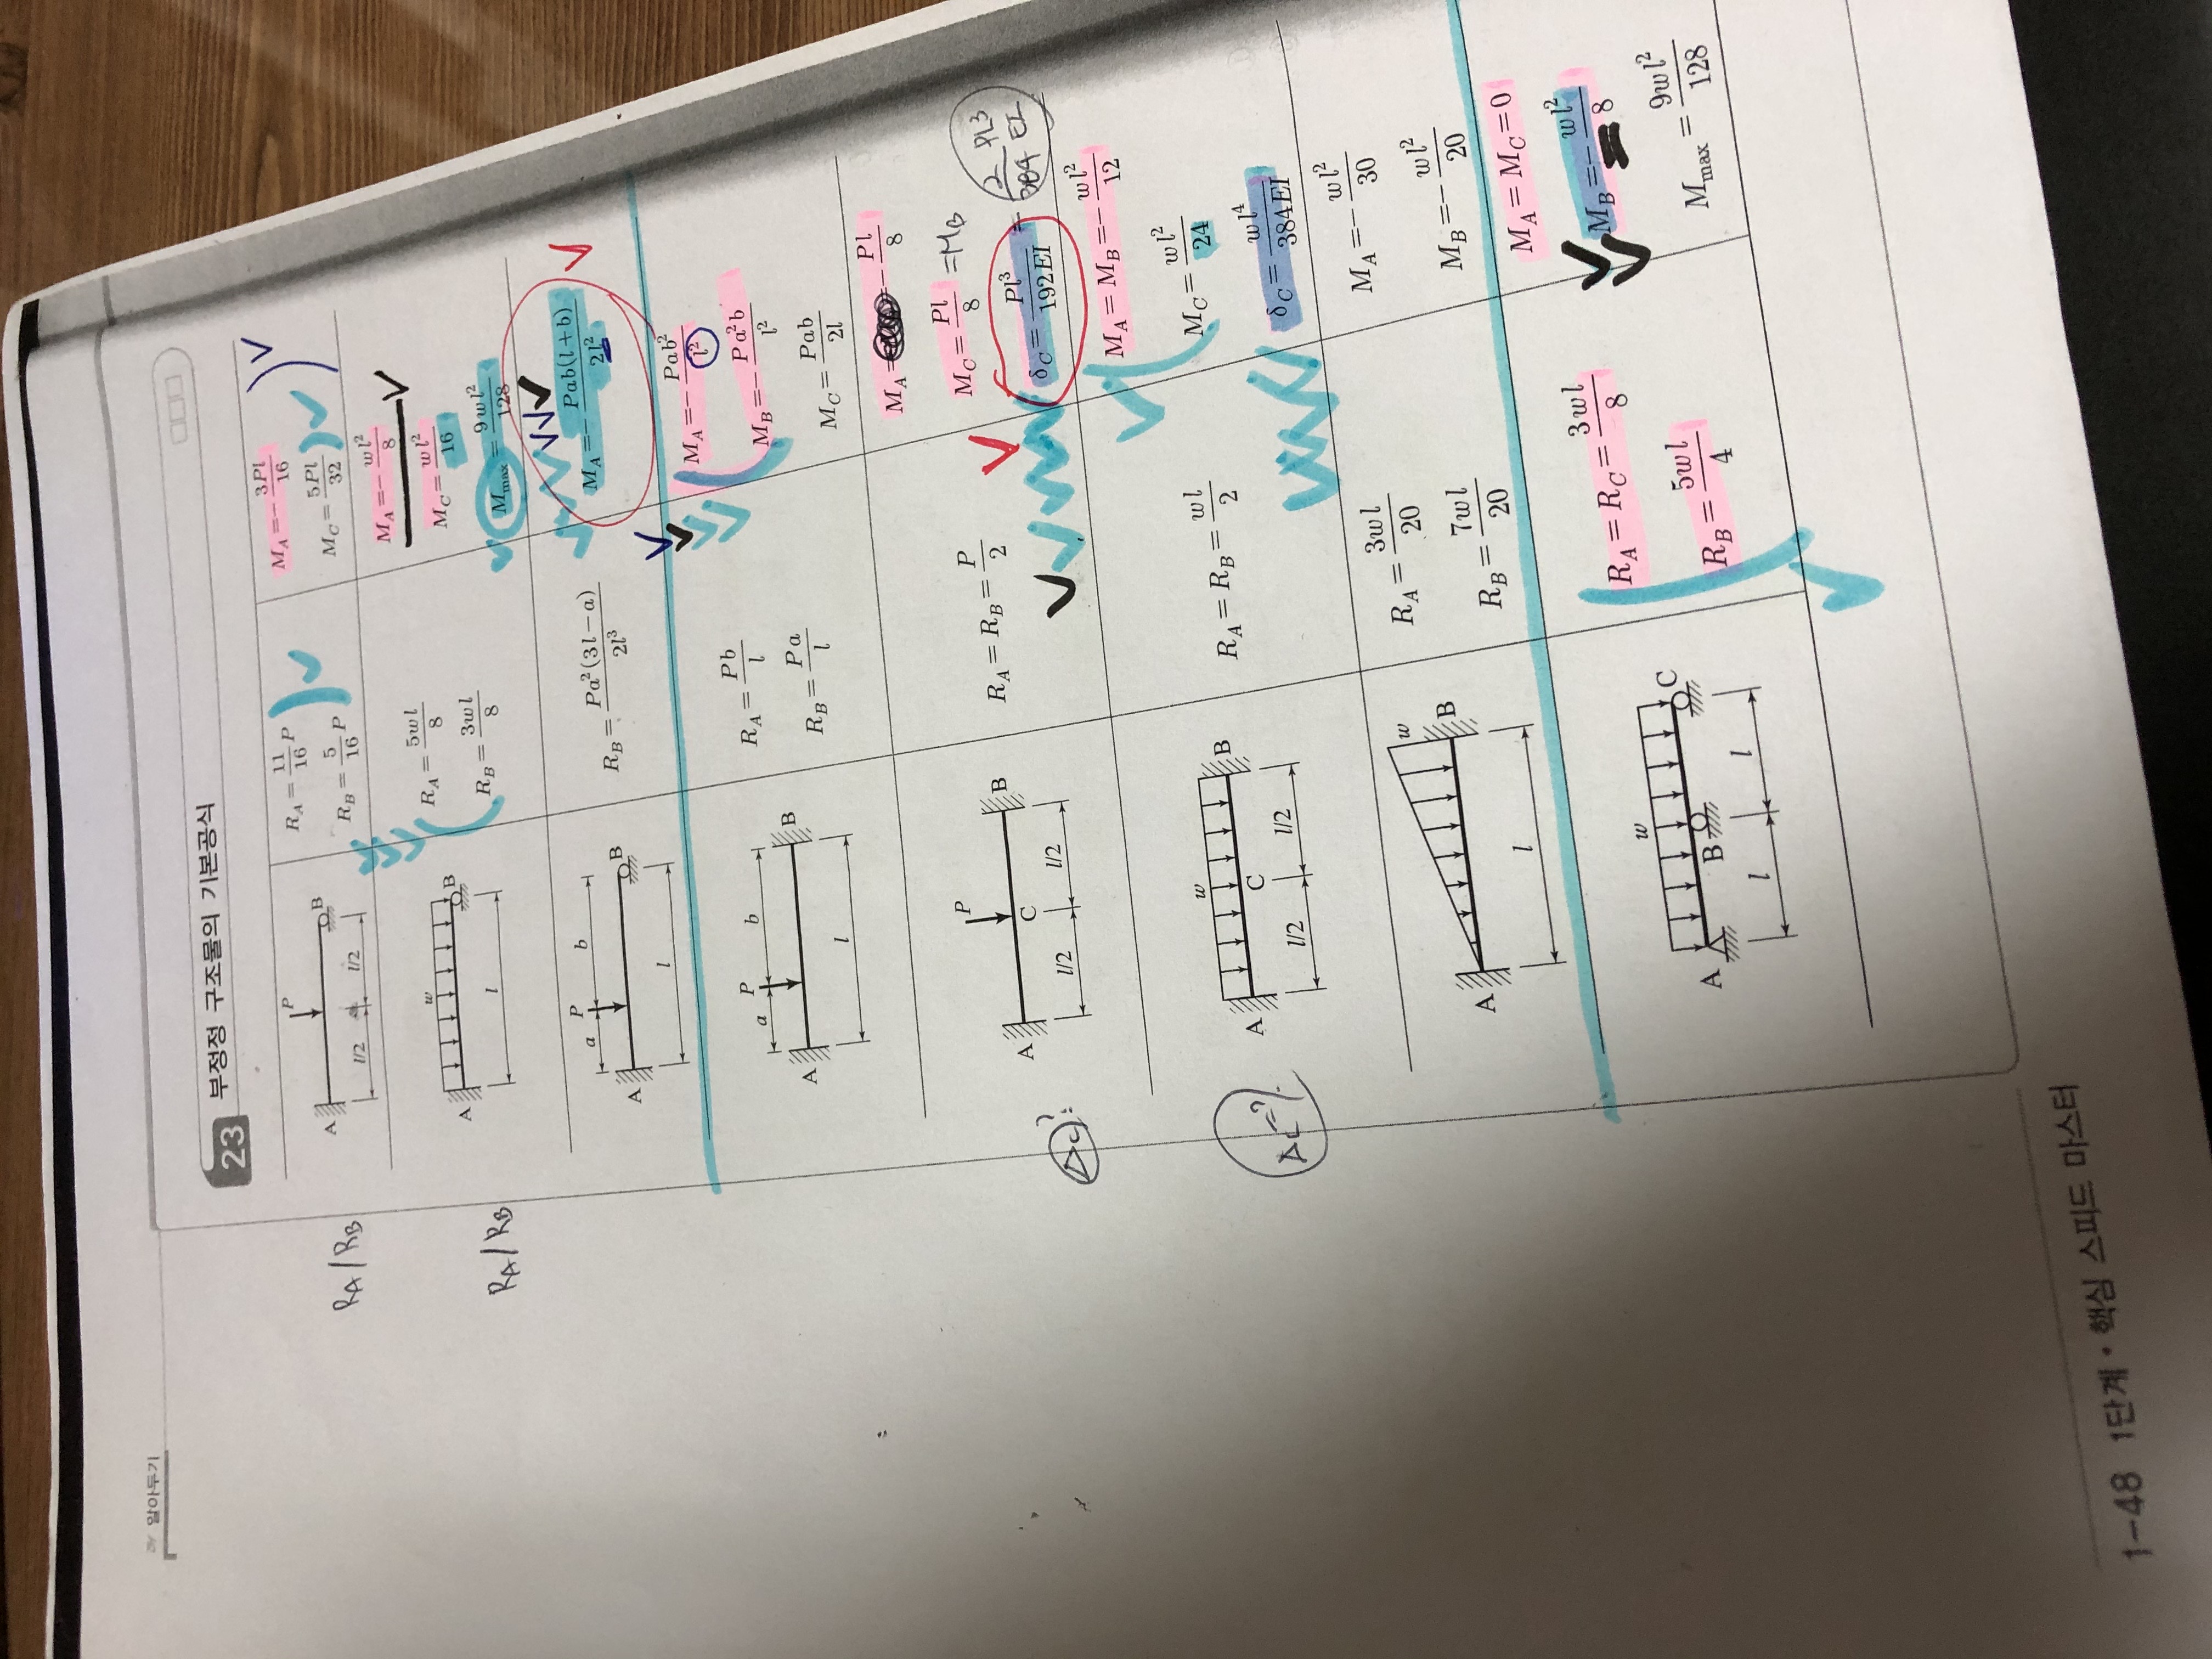 알아두기
23 부정정 구조물의 기본공식
P
A
B
l/2
l/2
R_A = 11/16 P
R_B = 5/16 P
M_A = -3Pl/16
M_C = 5Pl/32
R_A / R_B
w
A
B
l
R_A = 5wl/8
R_B = 3wl/8
M_A = -wl²/8
M_C = wl²/16
M_max = 9wl²/128
R_A / R_B
a
P
b
A
B
l
R_B = Pa²(3l-a)/2l³
M_A = -Pab(l+b)/2l²
a
P
b
A
B
l
R_A = Pb/l
R_B = Pa/l
M_A = -Pab²/l²
M_B = -Pa²b/l²
M_C = Pab/2l
P
A
C
B
l/2
l/2
R_A = R_B = P/2
M_A = -Pl/8
M_C = Pl/8 = M_B
δ_C = Pl³/192EI = 2/384 PL³/EI
Δc?
w
A
C
B
l/2
l/2
R_A = R_B = wl/2
M_A = M_B = -wl²/12
M_C = wl²/24
δ_C = wl⁴/384EI
Δc=?
w
A
B
l
R_A = 3wl/20
R_B = 7wl/20
M_A = -wl²/30
M_B = -wl²/20
w
A
B
C
l
l
R_A = R_C = 3wl/8
R_B = 5wl/4
M_A = M_C = 0
M_B = -wl²/8
M_max = 9wl²/128
1-48 1단계 · 핵심 스피드 마스터